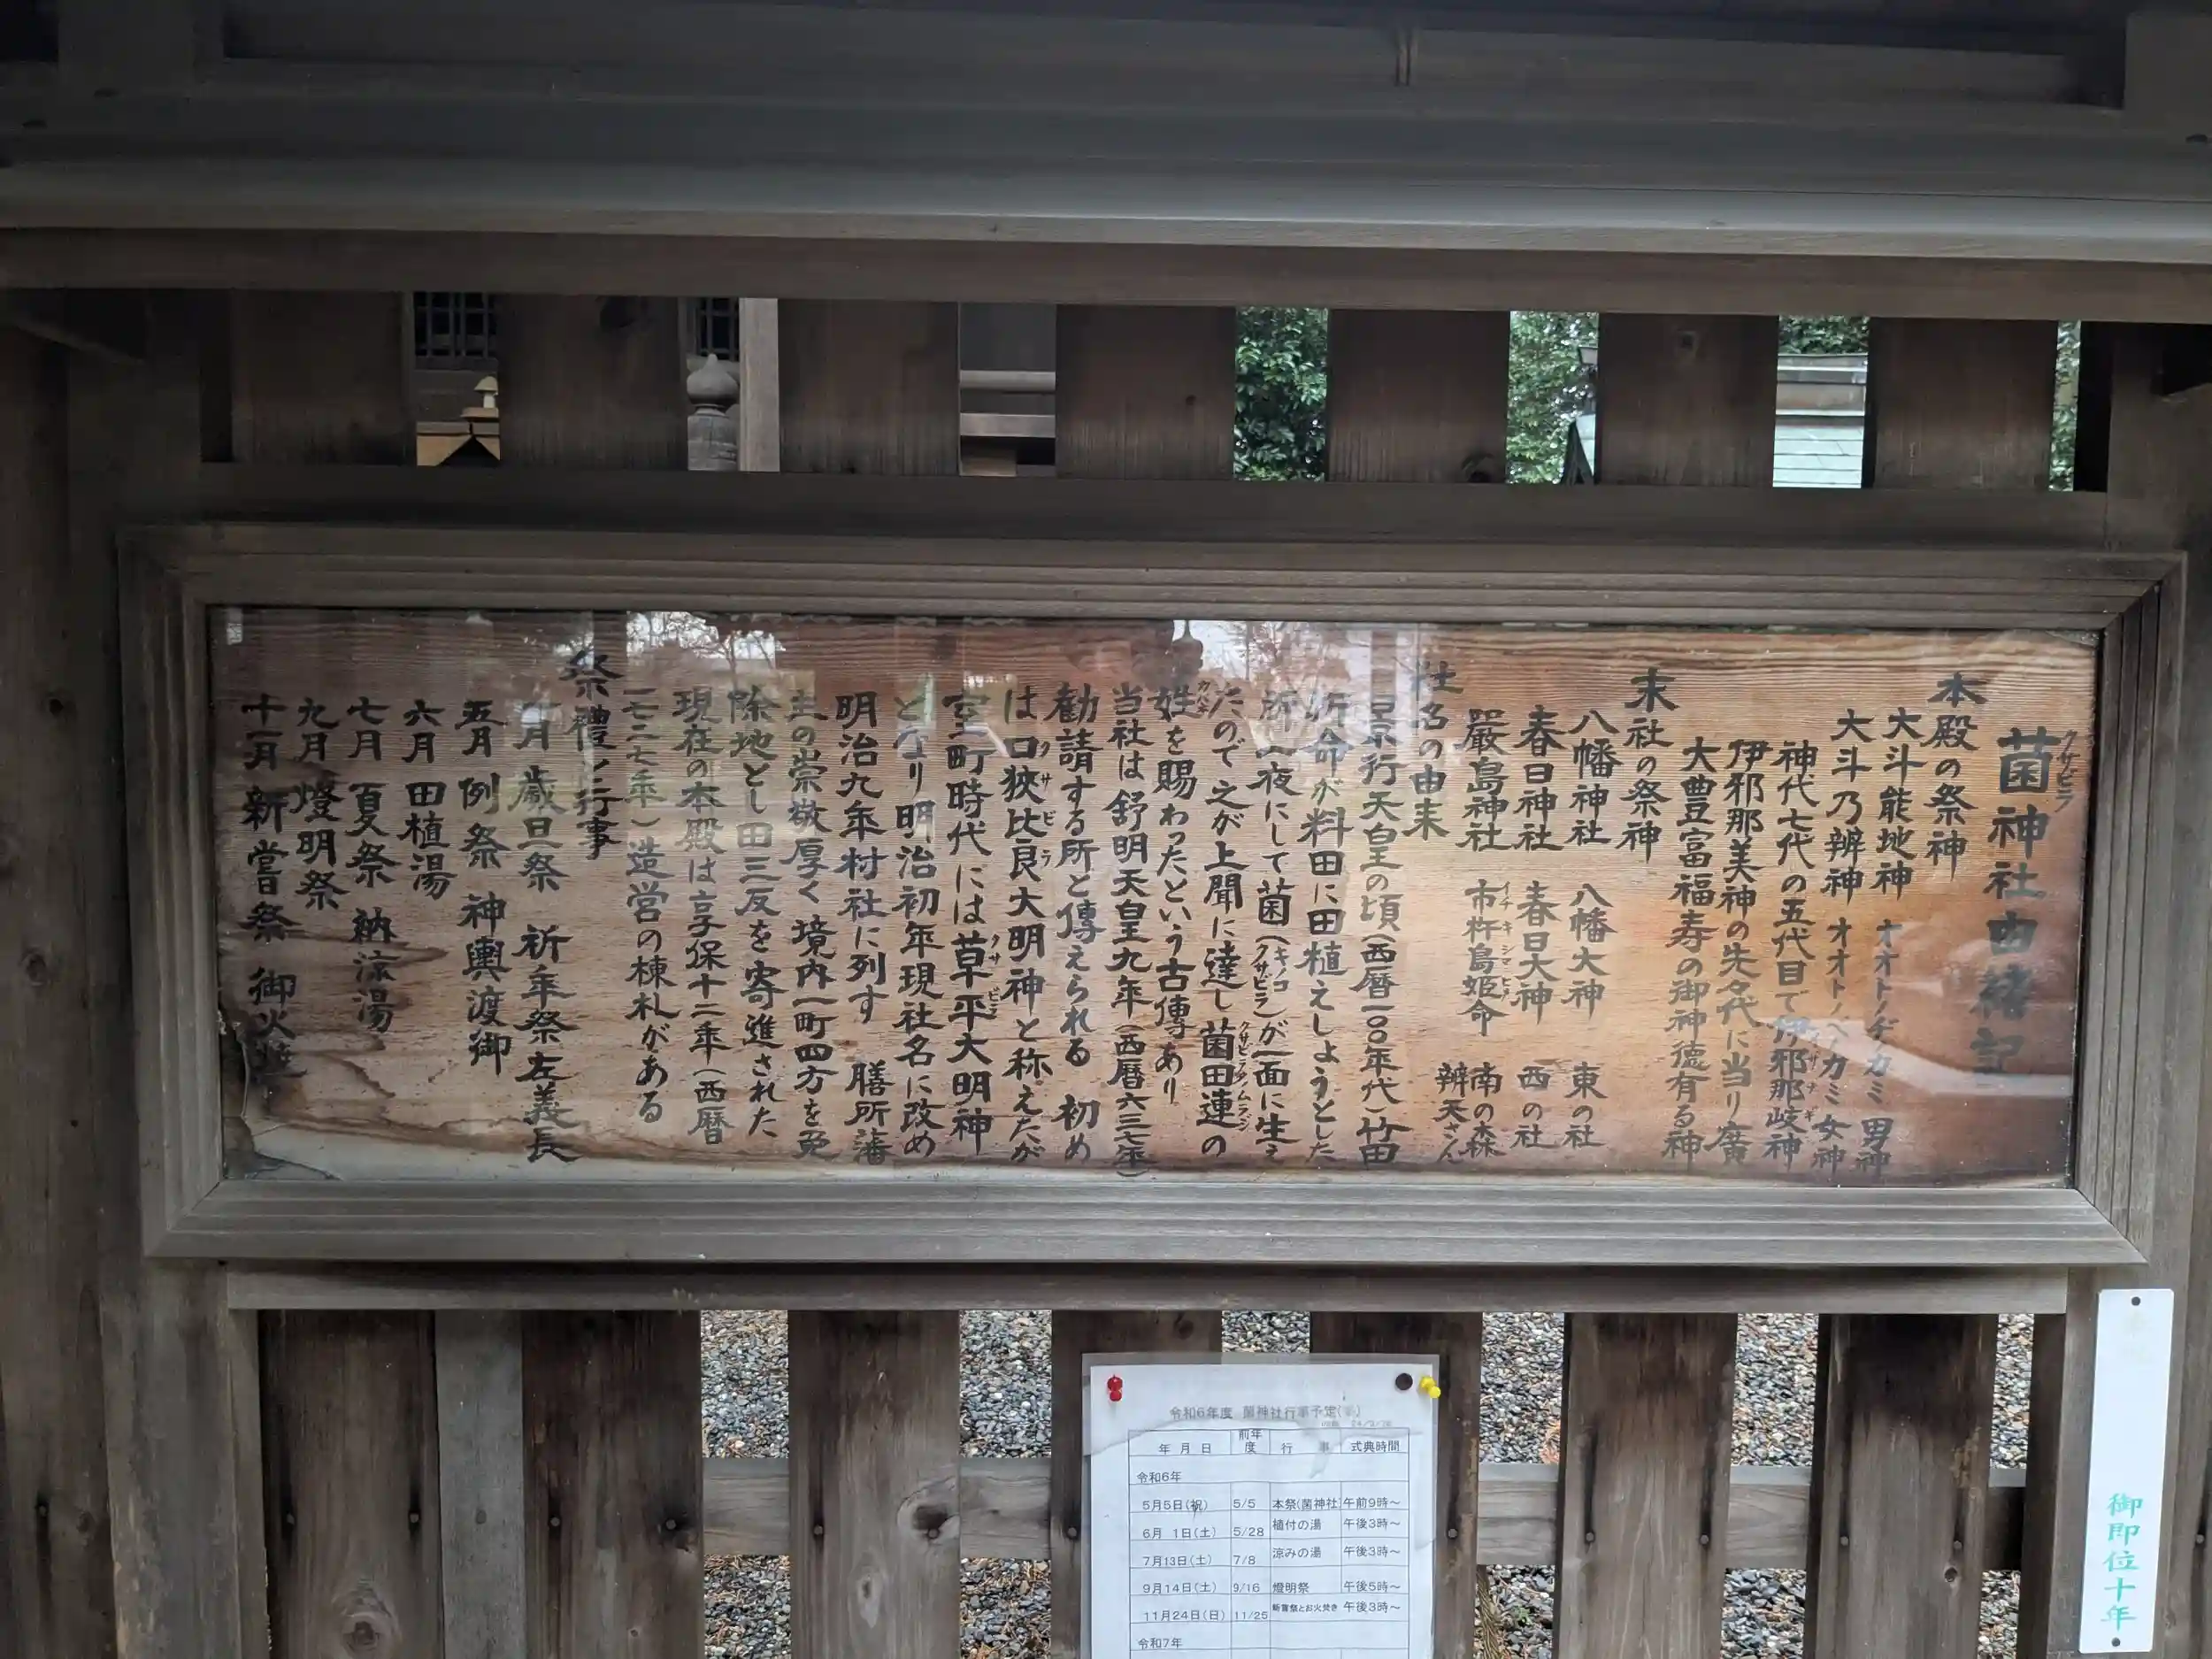 クサビラ
菌神社由緒記
本殿の祭神
大斗能地神 オオトノヂカミ 男神
大斗乃辨神 オオトノベカミ 女神
神代七代の五代目で伊邪那岐神
イザナギ
伊邪那美神の先々代に当り廣
大豊富福寿の御神徳有る神
末社の祭神
八幡神社 八幡大神 東の社
春日神社 春日大神 西の社
嚴島神社 市杵島姫命 南の森
イチキシマヒメ
辨天さん
社名の由来
景行天皇の頃(西暦一〇〇年代)竹田
折命が料田に田植えしようとした
所一夜にして菌(キノコ クサビラ)が一面に生え
たので之が上聞に達し菌田連の
クサビラタノムラジ
姓を賜わったという古傳あり
カバネ
当社は舒明天皇九年(西暦六三七年)
勧請する所と傳えられる 初め
は口狹比良大明神と称えたが
クサビラ
室町時代には草平大明神
クサビラ
となり明治初年現社名に改め
明治九年村社に列す 膳所藩
主の崇敬厚く境内一町四方を免
除地とし田三反を寄進された
現在の本殿は享保十二年(西暦
一七二七年)造営の棟札がある
祭禮と行事
月 歳旦祭 祈年祭左義長
五月 例祭 神輿渡御
六月 田植湯
七月 夏祭 納涼湯
九月 燈明祭
十一月 新嘗祭 御火焼
令和6年度 菌神社行事予定
年月日 前年度 行事 式典時間
令和6年
5月5日(祝) 5/5 本祭(菌神社) 午前9時～
6月 1日(土) 5/28 植付の湯 午後3時～
7月13日(土) 7/8 涼みの湯 午後3時～
9月14日(土) 9/16 燈明祭 午後5時～
11月24日(日) 11/25 新嘗祭とお火焚き 午後3時～
令和7年
御即位十年